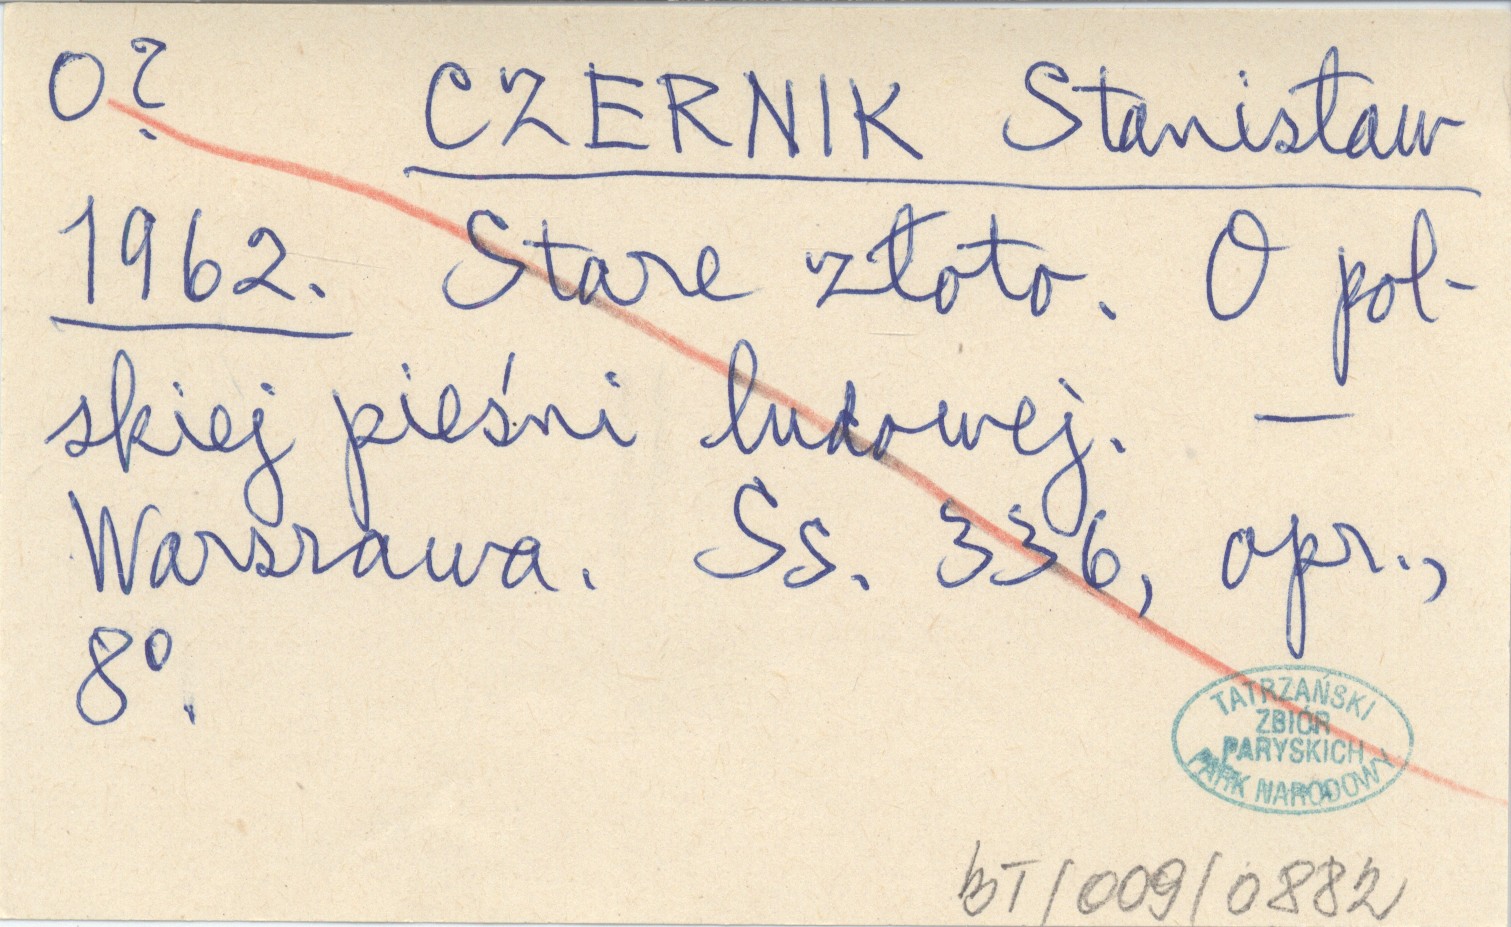 O? CZERNIK Stanisław
1962. Stare złoto. O pol-
skiej pieśni ludowej. —
Warszawa. Ss. 336, opr.,
8°.
TATRZAŃSKI
ZBIÓR
PARYSKICH
PARK NARODOWY
BT/009/0882